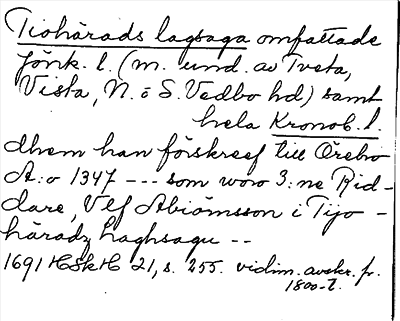 Tiohärads lagsaga omfattade
Jönk. l. (m. und. av Tveta,
Vista, N. o S. Vedbo hd) samt
hela Kronob. l.
dhem han förskref till Örebo
A:o 1347 --- som woro 3:ne Rid-
dare, Ulf Abiörnsson i Tijo-
häradz laghsagu --
1691 HSkH 21, s. 255. vidim. avskr. fr.
1800-t.